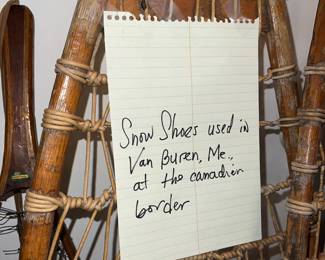 Snow Shoes used in
Van Buren, Me.,
at the canadien
border